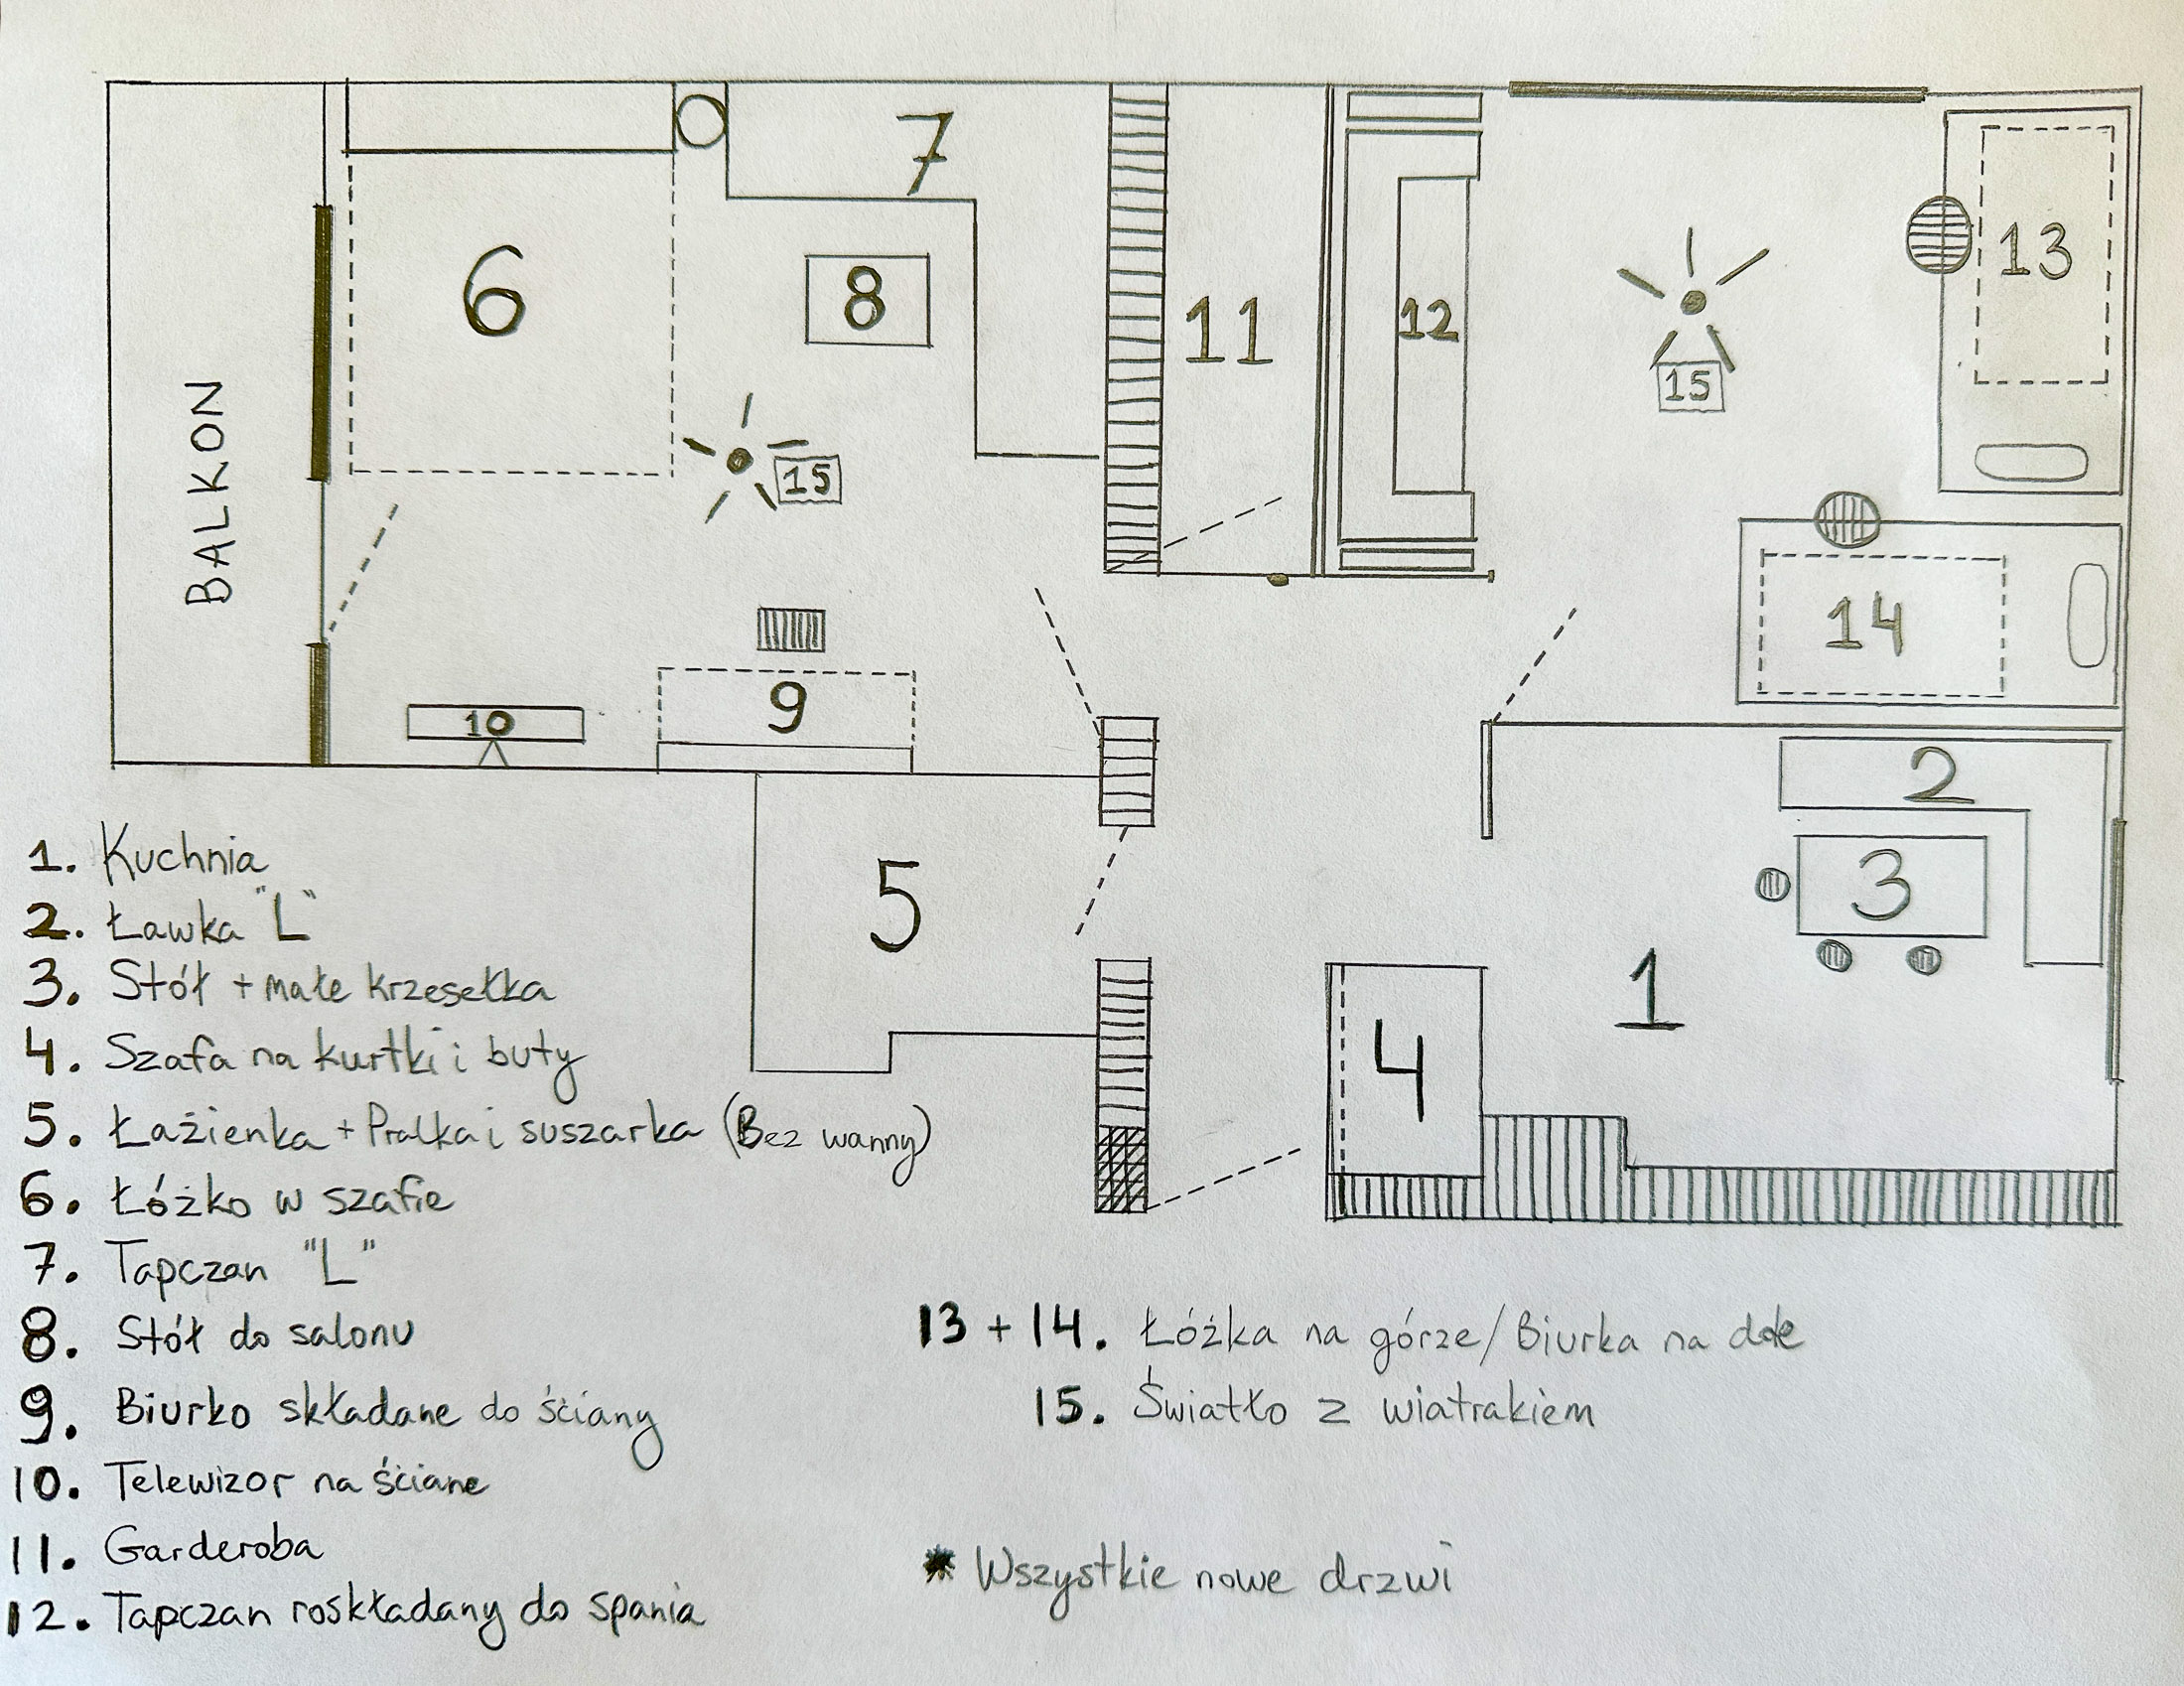 6
7
8
11
12
13
15
15
BALKON
14
9
10
2
3
5
1
4
1. Kuchnia
2. Ławka "L"
3. Stół + małe krzesełka
4. Szafa na kurtki i buty
5. Łazienka + Pralka i suszarka (Bez wanny)
6. Łóżko w szafie
7. Tapczan "L"
8. Stół do salonu
9. Biurko składane do ściany
10. Telewizor na ściane
11. Garderoba
12. Tapczan roskładany do spania
13 + 14. Łóżka na górze/Biurka na dole
15. Światło z wiatrakiem
* Wszystkie nowe drzwi